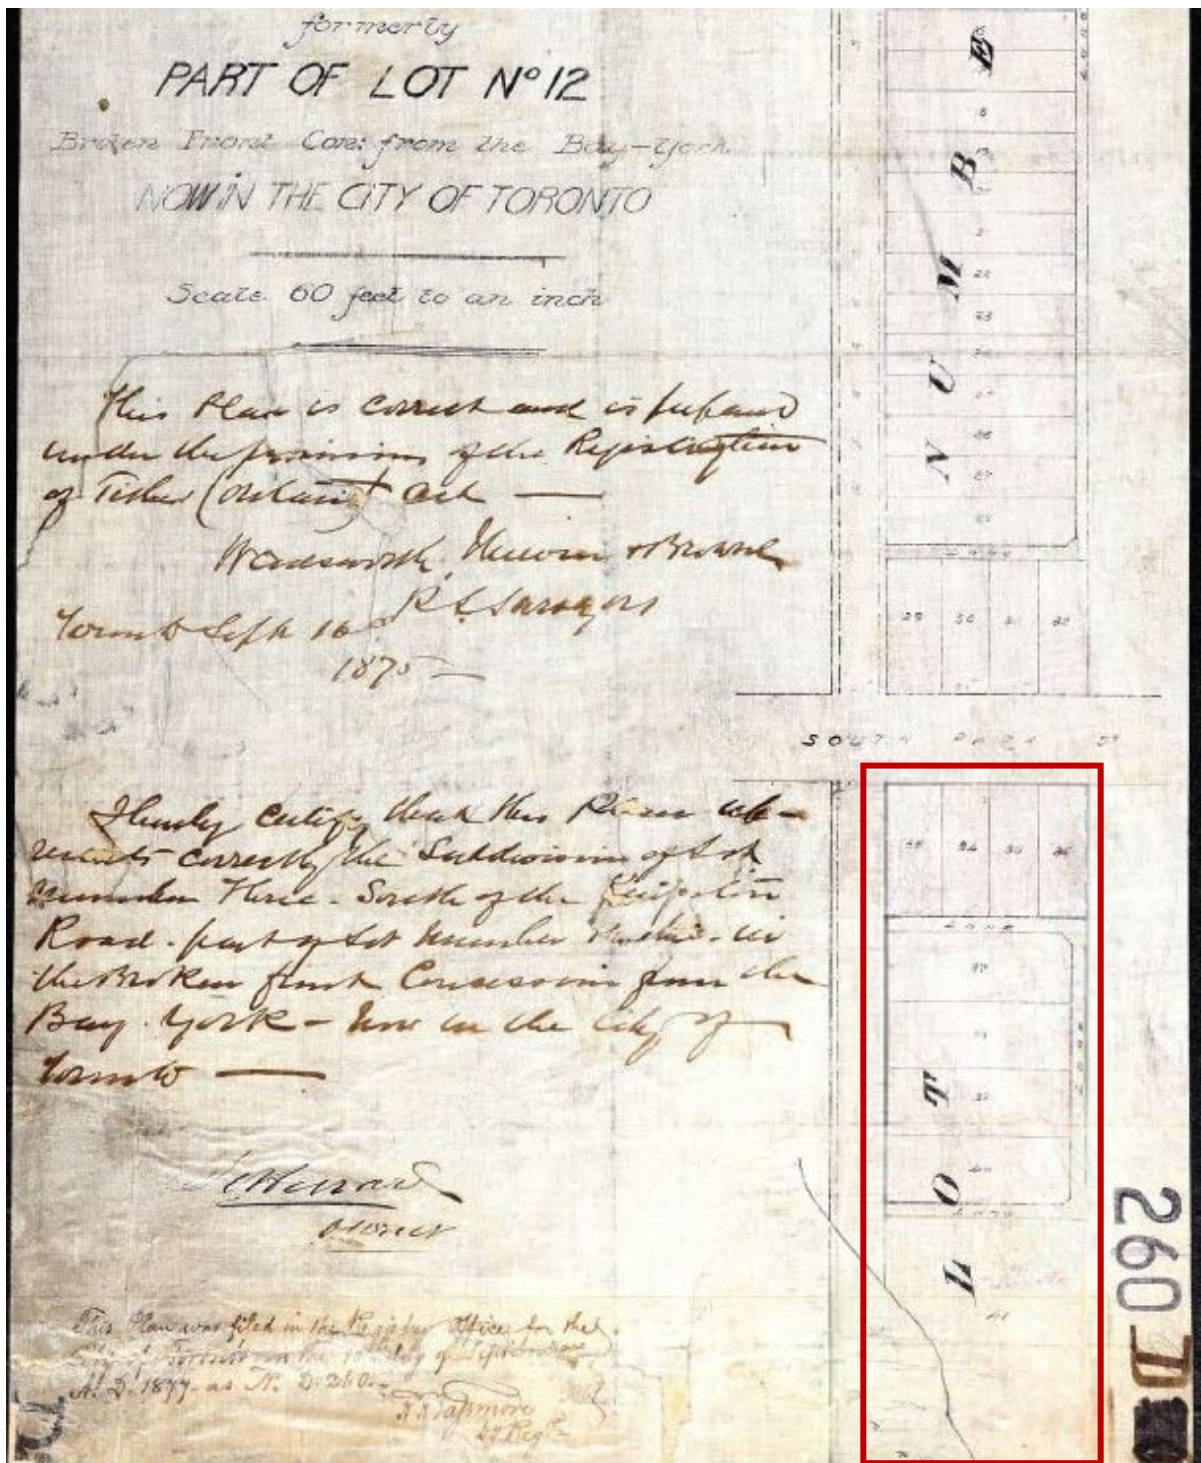 formerly
PART OF LOT Nº 12
Broken Front Con: from the Bay-York
NOW IN THE CITY OF TORONTO
Scale 60 feet to an inch
This Plan is correct and is prepared
under the provisions of the Registration
of Titles (Ontario) Act —
Wadsworth, Unwin & Browne
P.L. Surveyors
Toronto Sept 16
1875 —
I hereby certify that this Plan rep-
resents correctly the Subdivision of Lot
Number Three - South of the Kingston
Road - part of Lot Number - in
the Broken front Concession from the
Bay - York - Now in the City of
Toronto —
This Plan was filed in the Registry Office for the
City of Toronto on the 10th day of September
A. D. 1877 as No. D. 260.
LOT NUMBE
22
23
26
27
LANE
29 30 31 32
SOUTH PARK ST
34 36
LANE
LANE
40
LANE
41
260 D